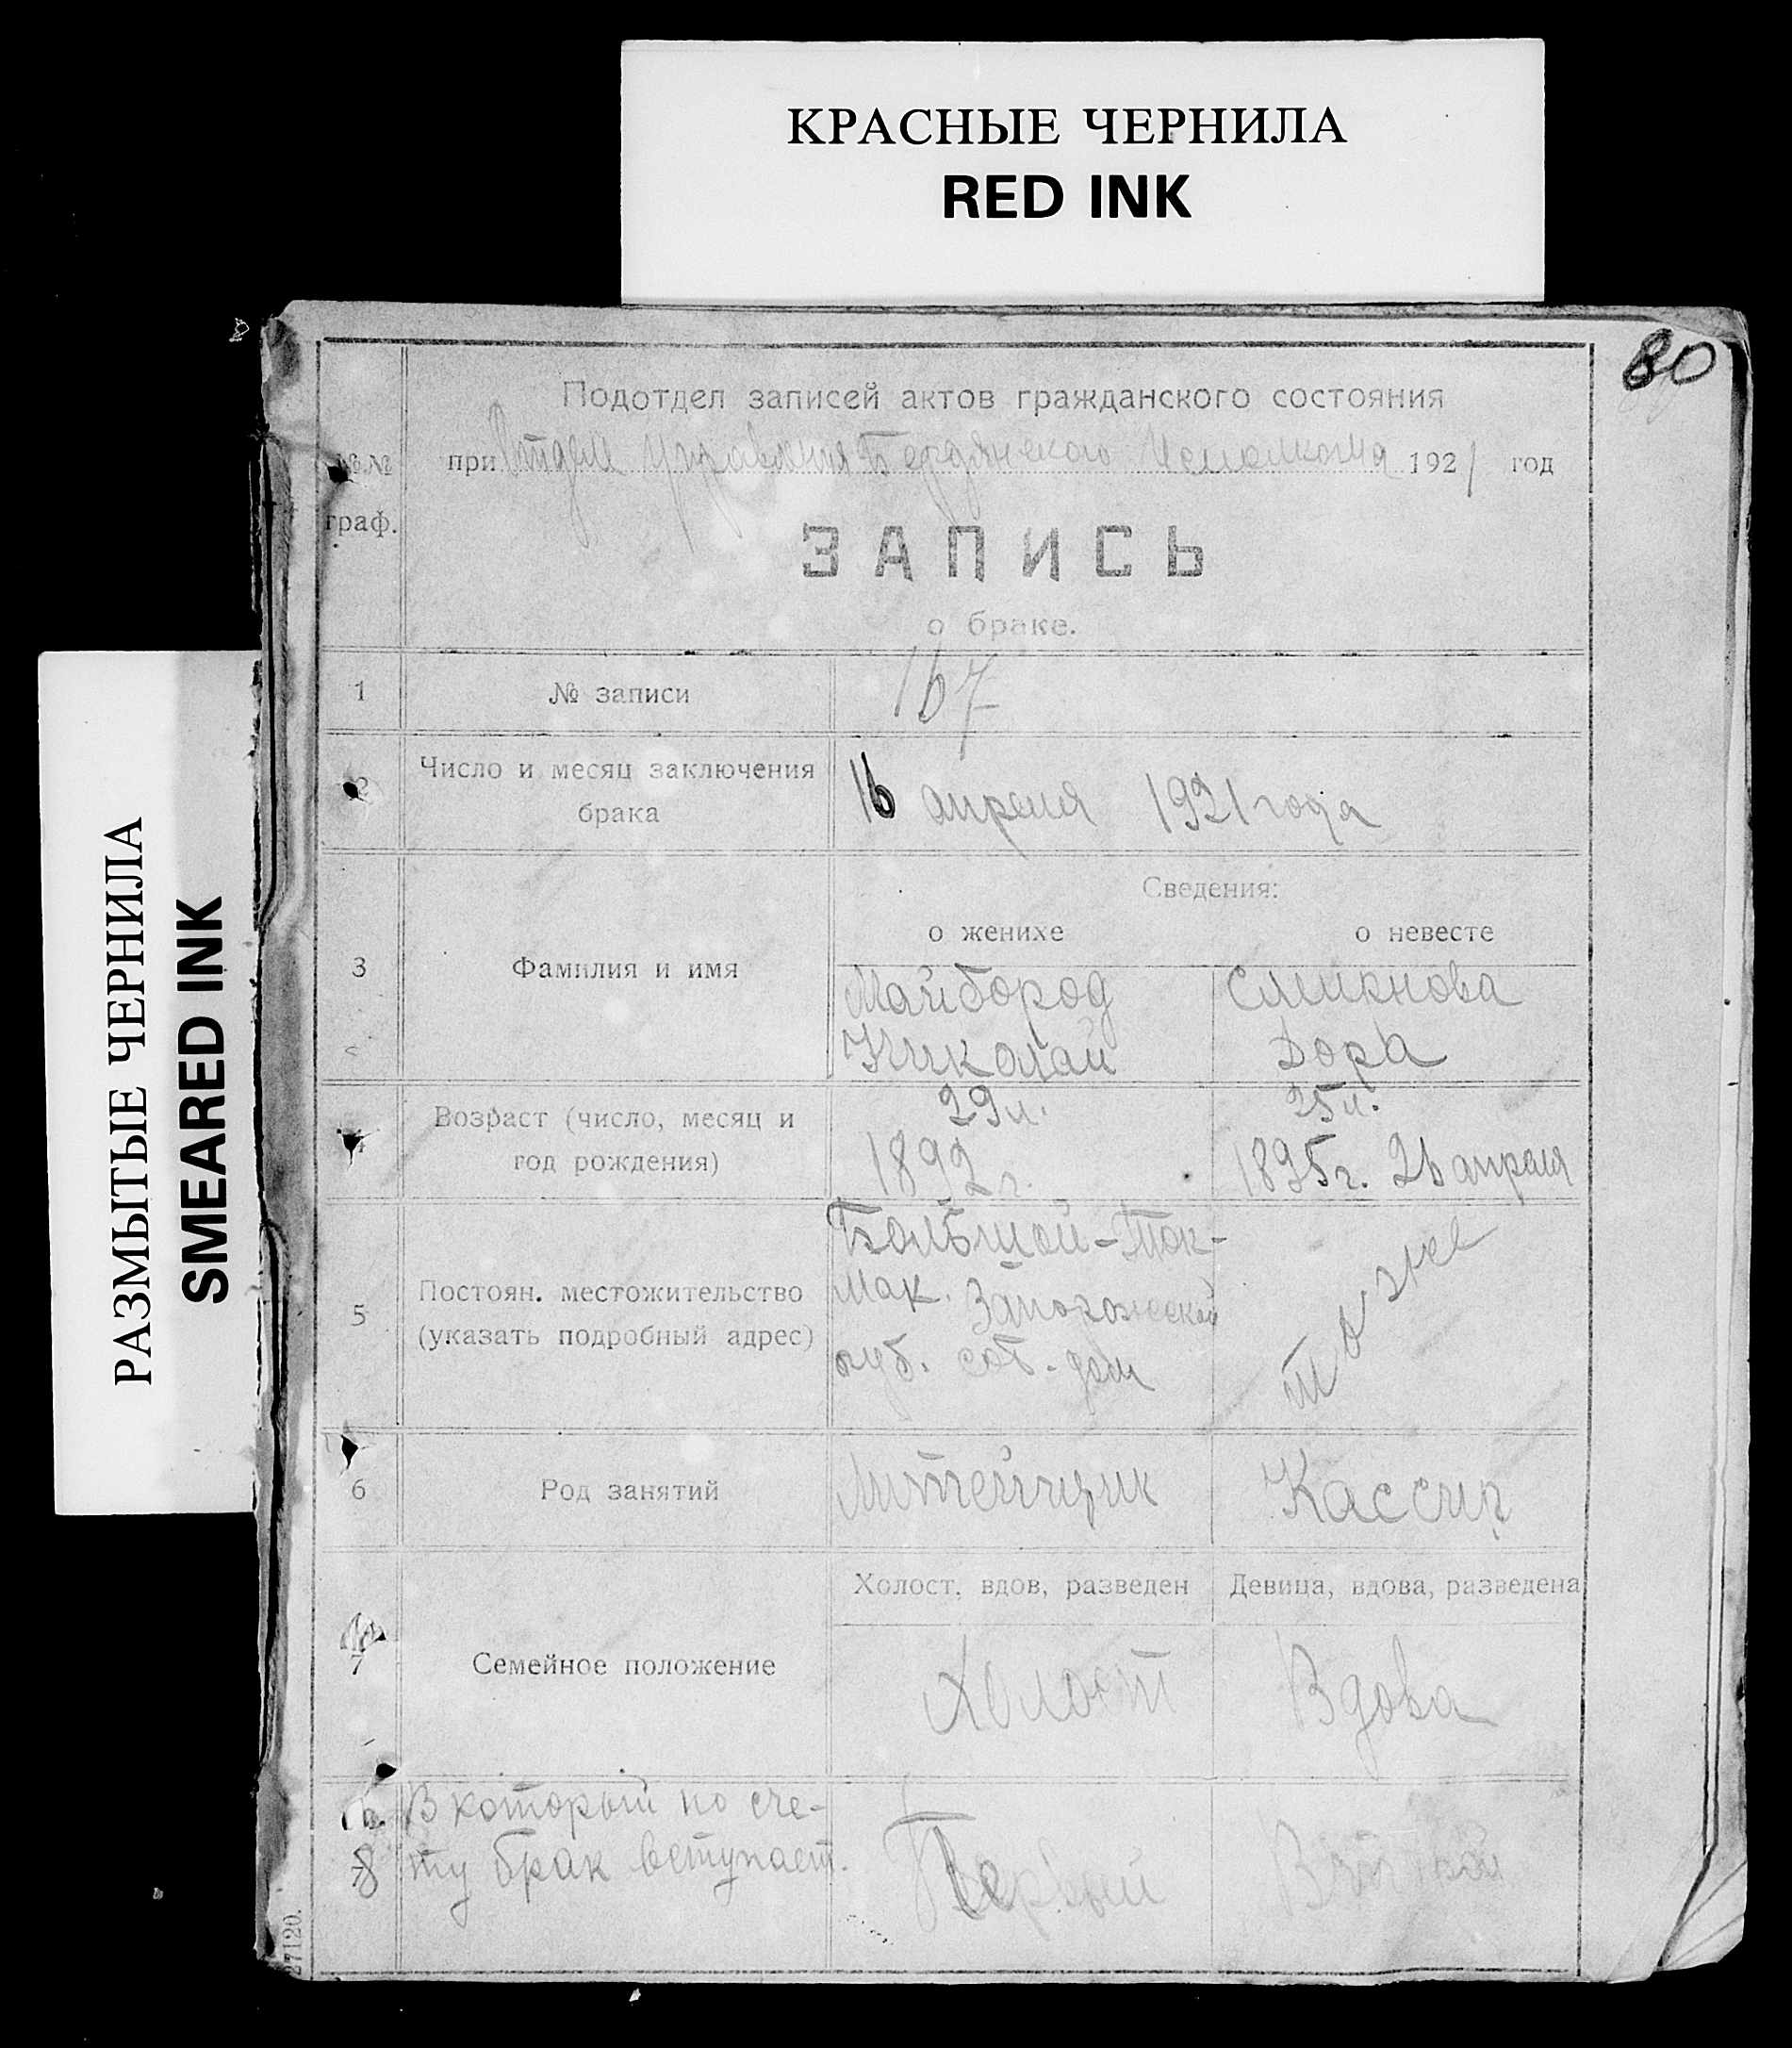 КРАСНЫЕ ЧЕРНИЛА
RED INK
РАЗМЫТЫЕ ЧЕРНИЛА
SMEARED INK
80
№№
граф.
Подотдел записей актов гражданского состояния
при Отделе Управления Бердянского Исполкома 1921 год
ЗАПИСЬ
о браке.
1 № записи 167
2 Число и месяц заключения
брака
16 апреля 1921 года
Сведения:
о женихе о невесте
3 Фамилия и имя
Майбород Смирнова
Николай Дора
4 Возраст (число, месяц и
год рождения)
29 л. 25 л.
1892 г. 1895 г. 26 апреля
5 Постоян. местожительство
(указать подробный адрес)
Большой-Ток-
мак. Запорожской
губ. соб. дом
то же
6 Род занятий Литейщик Кассир
Холост, вдов, разведен Девица, вдова, разведена
7 Семейное положение Холост Вдова
8 В который по сче-
ту брак вступает.
Первый Второй
27120.